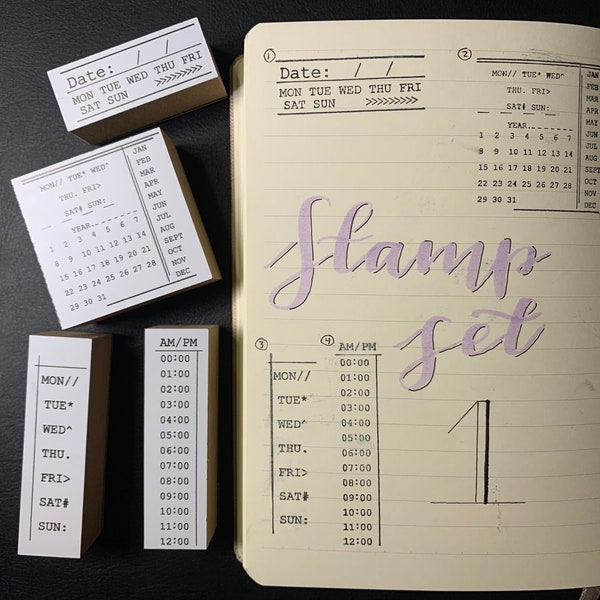 Date: / /
MON TUE WED THU FRI
SAT SUN >>>>>>>>>
MON// TUE* WED^
THU. FRI>
SAT# SUN:
YEAR
1 2 3 4 5 6 7
8 9 10 11 12 13 14
15 16 17 18 19 20 21
22 23 24 25 26 27 28
29 30 31
JAN
FEB
MAR
APR
MAY
JUN
JUL
AUG
SEPT
OCT
NOV
DEC
MON//
TUE*
WED^
THU.
FRI>
SAT#
SUN:
AM/PM
00:00
01:00
02:00
03:00
04:00
05:00
06:00
07:00
08:00
09:00
10:00
11:00
12:00
1
Date: / /
MON TUE WED THU FRI
SAT SUN >>>>>>>>>
2
MON// TUE* WED^
THU. FRI>
SAT# SUN:
YEAR
1 2 3 4 5 6 7
8 9 10 11 12 13 14
15 16 17 18 19 20 21
22 23 24 25 26 27 28
29 30 31
JAN
FEB
MAR
APR
MAY
JUN
JUL
AUG
SEPT
OCT
NOV
DEC
Stamp
set
3
MON//
TUE*
WED^
THU.
FRI>
SAT#
SUN:
4
AM/PM
00:00
01:00
02:00
03:00
04:00
05:00
06:00
07:00
08:00
09:00
10:00
11:00
12:00
1